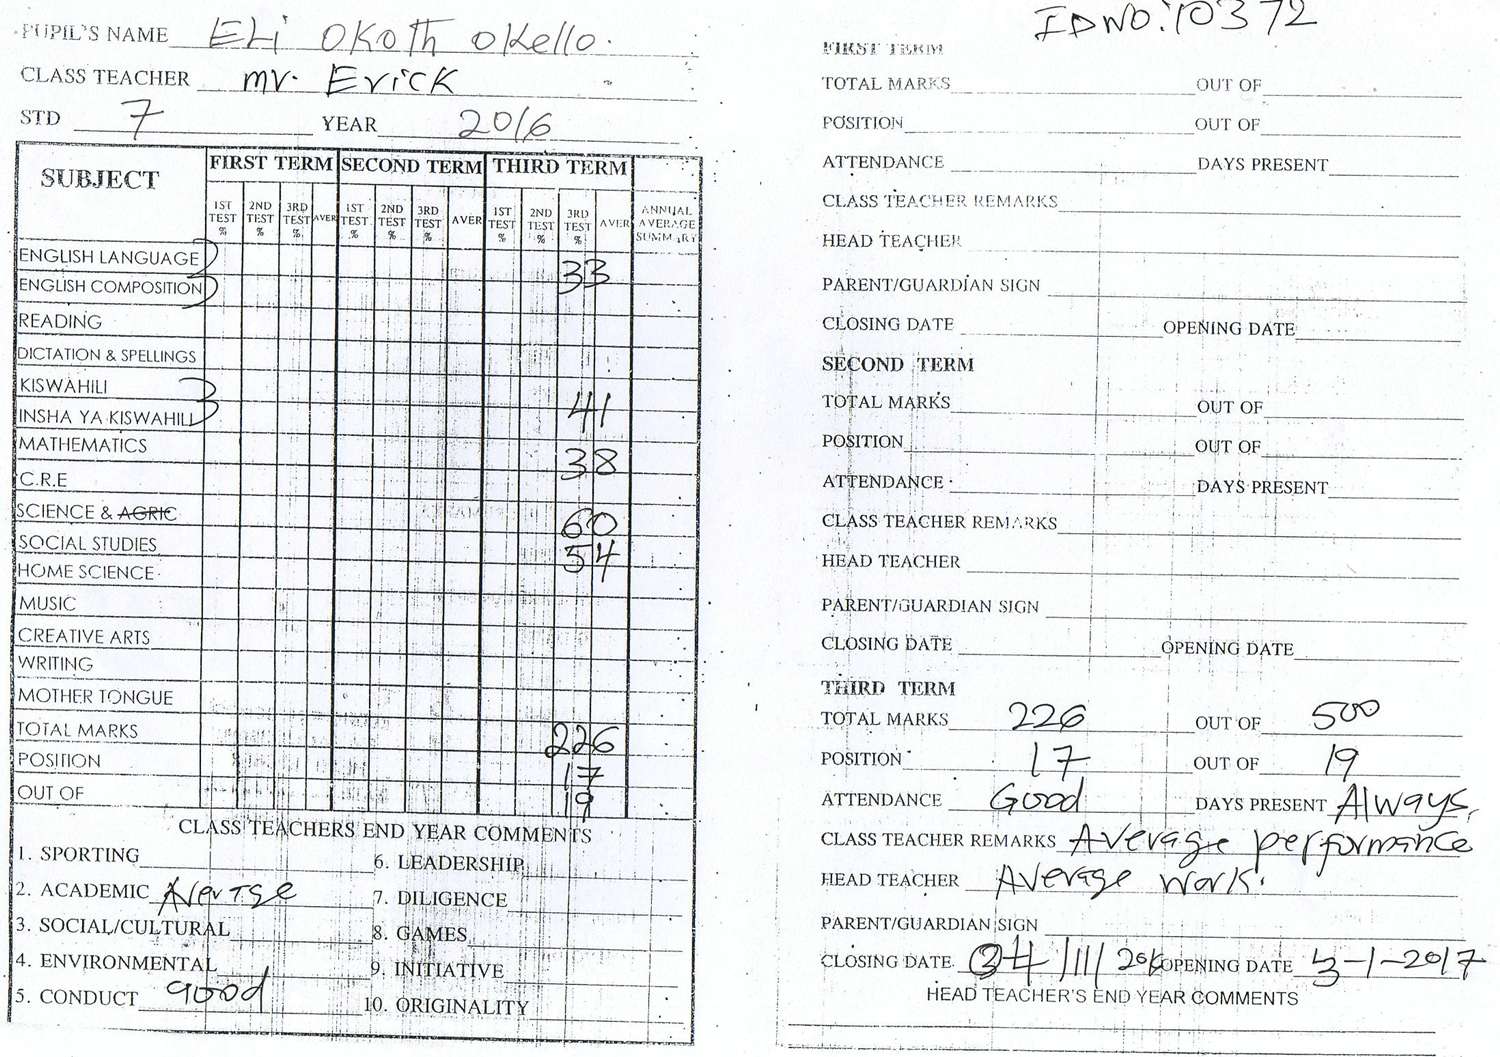 PUPIL'S NAME ELi OKoth OKello.
CLASS TEACHER mr. Erick
STD 7 YEAR 2016
SUBJECT FIRST TERM SECOND TERM THIRD TERM
1ST TEST % 2ND TEST % 3RD TEST % AVER 1ST TEST % 2ND TEST % 3RD TEST % AVER 1ST TEST % 2ND TEST % 3RD TEST % AVER ANNUAL AVERAGE SUMMARY
ENGLISH LANGUAGE
ENGLISH COMPOSITION 33
READING
DICTATION & SPELLINGS
KISWAHILI
INSHA YA KISWAHILI 41
MATHEMATICS 38
C.R.E
SCIENCE & AGRIC 60
SOCIAL STUDIES 54
HOME SCIENCE
MUSIC
CREATIVE ARTS
WRITING
MOTHER TONGUE
TOTAL MARKS 226
POSITION 17
OUT OF 19
CLASS TEACHERS END YEAR COMMENTS
1. SPORTING 6. LEADERSHIP
2. ACADEMIC Average 7. DILIGENCE
3. SOCIAL/CULTURAL 8. GAMES
4. ENVIRONMENTAL 9. INITIATIVE
5. CONDUCT good 10. ORIGINALITY
IDNO: 10372
FIRST TERM
TOTAL MARKS OUT OF
POSITION OUT OF
ATTENDANCE DAYS PRESENT
CLASS TEACHER REMARKS
HEAD TEACHER
PARENT/GUARDIAN SIGN
CLOSING DATE OPENING DATE
SECOND TERM
TOTAL MARKS OUT OF
POSITION OUT OF
ATTENDANCE DAYS PRESENT
CLASS TEACHER REMARKS
HEAD TEACHER
PARENT/GUARDIAN SIGN
CLOSING DATE OPENING DATE
THIRD TERM
TOTAL MARKS 226 OUT OF 500
POSITION 17 OUT OF 19
ATTENDANCE Good DAYS PRESENT Always.
CLASS TEACHER REMARKS Average performance
HEAD TEACHER Average work.
PARENT/GUARDIAN SIGN
CLOSING DATE /11/ 2016 OPENING DATE 3-1-2017
HEAD TEACHER'S END YEAR COMMENTS